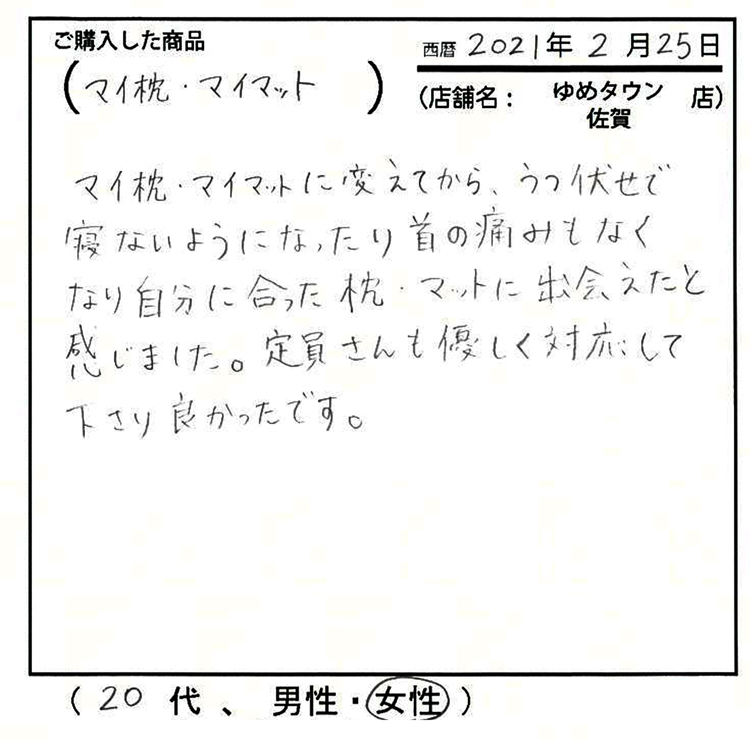 ご購入した商品
西暦 2021年 2月25日
(マイ枕・マイマット)
(店舗名： ゆめタウン佐賀 店)
マイ枕・マイマットに変えてから、うつ伏せで
寝ないようになったり首の痛みもなく
なり自分に合った枕・マットに出会えたと
感じました。定員さんも優しく対応して
下さり良かったです。
(20代、男性・女性)